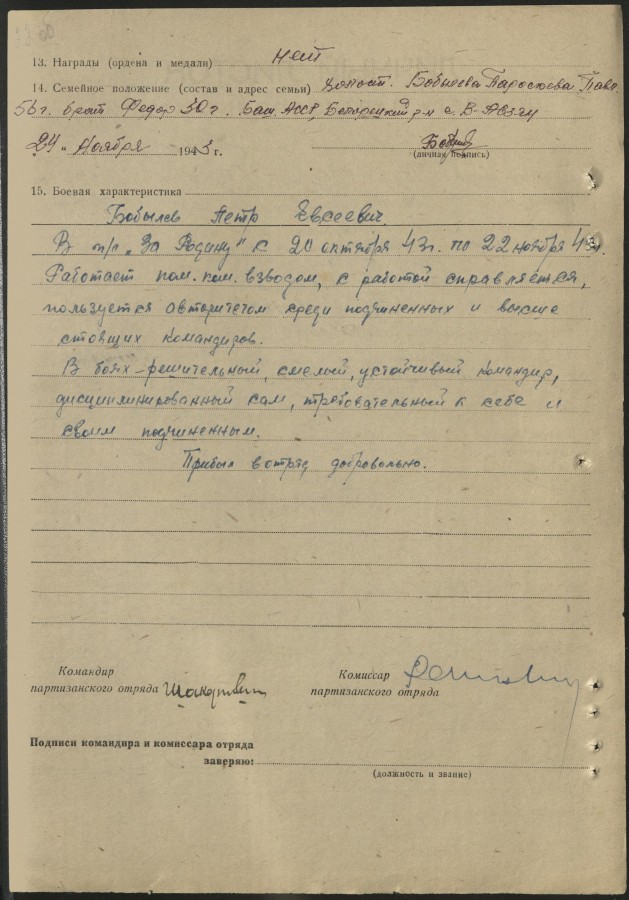 13. Награды (ордена и медали) нет
14. Семейное положение (состав и адрес семьи) холост. Бобылева
56 г. брат Федор 30 г. Баш. АССР, р-н с. В-Авзян
24 " Ноября 1943 г.
(личная подпись)
15. Боевая характеристика
Бобылев Петр Евсеевич
В п/о "За Родину" с 20 октября 43 г. по 22 ноября 43 г.
Работает пом. ком. взводом, с работой справляется,
пользуется авторитетом среди подчиненных и выше
стоящих командиров.
В боях – решительный, смелый, устойчивый командир,
дисциплинированный сам, требовательный к себе и
своим подчиненным.
Прибыл в отряд добровольно.
Командир
партизанского отряда
Комиссар
партизанского отряда
Подписи командира и комиссара отряда
заверяю:
(должность и звание)